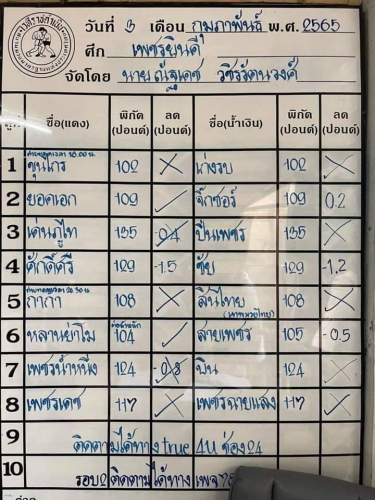 วันที่ 3 เดือน กุมภาพันธ์ พ.ศ. 2565
ศึก เพชรยินดี
จัดโดย นาย ณัฐเดช วชิรรัตนวงศ์
คู่ ชื่อ(แดง) พิกัด (ปอนด์) ลด (ปอนด์) ชื่อ(น้ำเงิน) พิกัด (ปอนด์) ลด (ปอนด์)
1 ขุนไกร 102 เก่งรบ 102
2 ยอดเอก 109 จิ๊กซอร์ 109 0.2
3 เด่นภูไท 135 -0.4 ปืนเพชร 135
4 ศักดิ์ศรี 129 -1.5 ชัย 129 -1.2
5 กากา 108 ลินไทย 108
6 หลานย่าโม 104 สายเพชร 105 -0.5
7 เพชรน้ำหนึ่ง 124 -0.8 บิน 124
8 เพชรเดช 117 เพชรฉายแสง 117
9 ติดตามได้ทาง true 4U ช่อง 24
10 รอบ 2 ติดตามได้ทาง เพจ